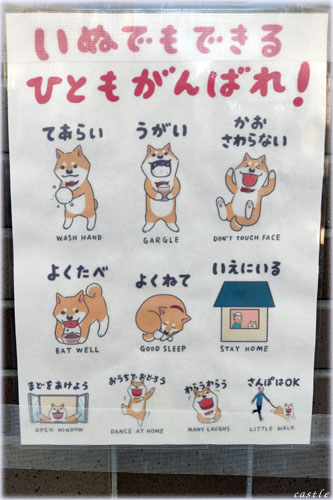 いぬでもできる
ひともがんばれ!
てあらい
WASH HAND
うがい
GARGLE
かお
さわらない
DON'T TOUCH FACE
よくたべ
EAT WELL
よくねて
GOOD SLEEP
いえにいる
STAY HOME
まどをあけよう
OPEN WINDOW
おうちでおどろう
DANCE AT HOME
わらうわらう
MANY LAUGHS
さんぽはOK
LITTLE WALK
castle